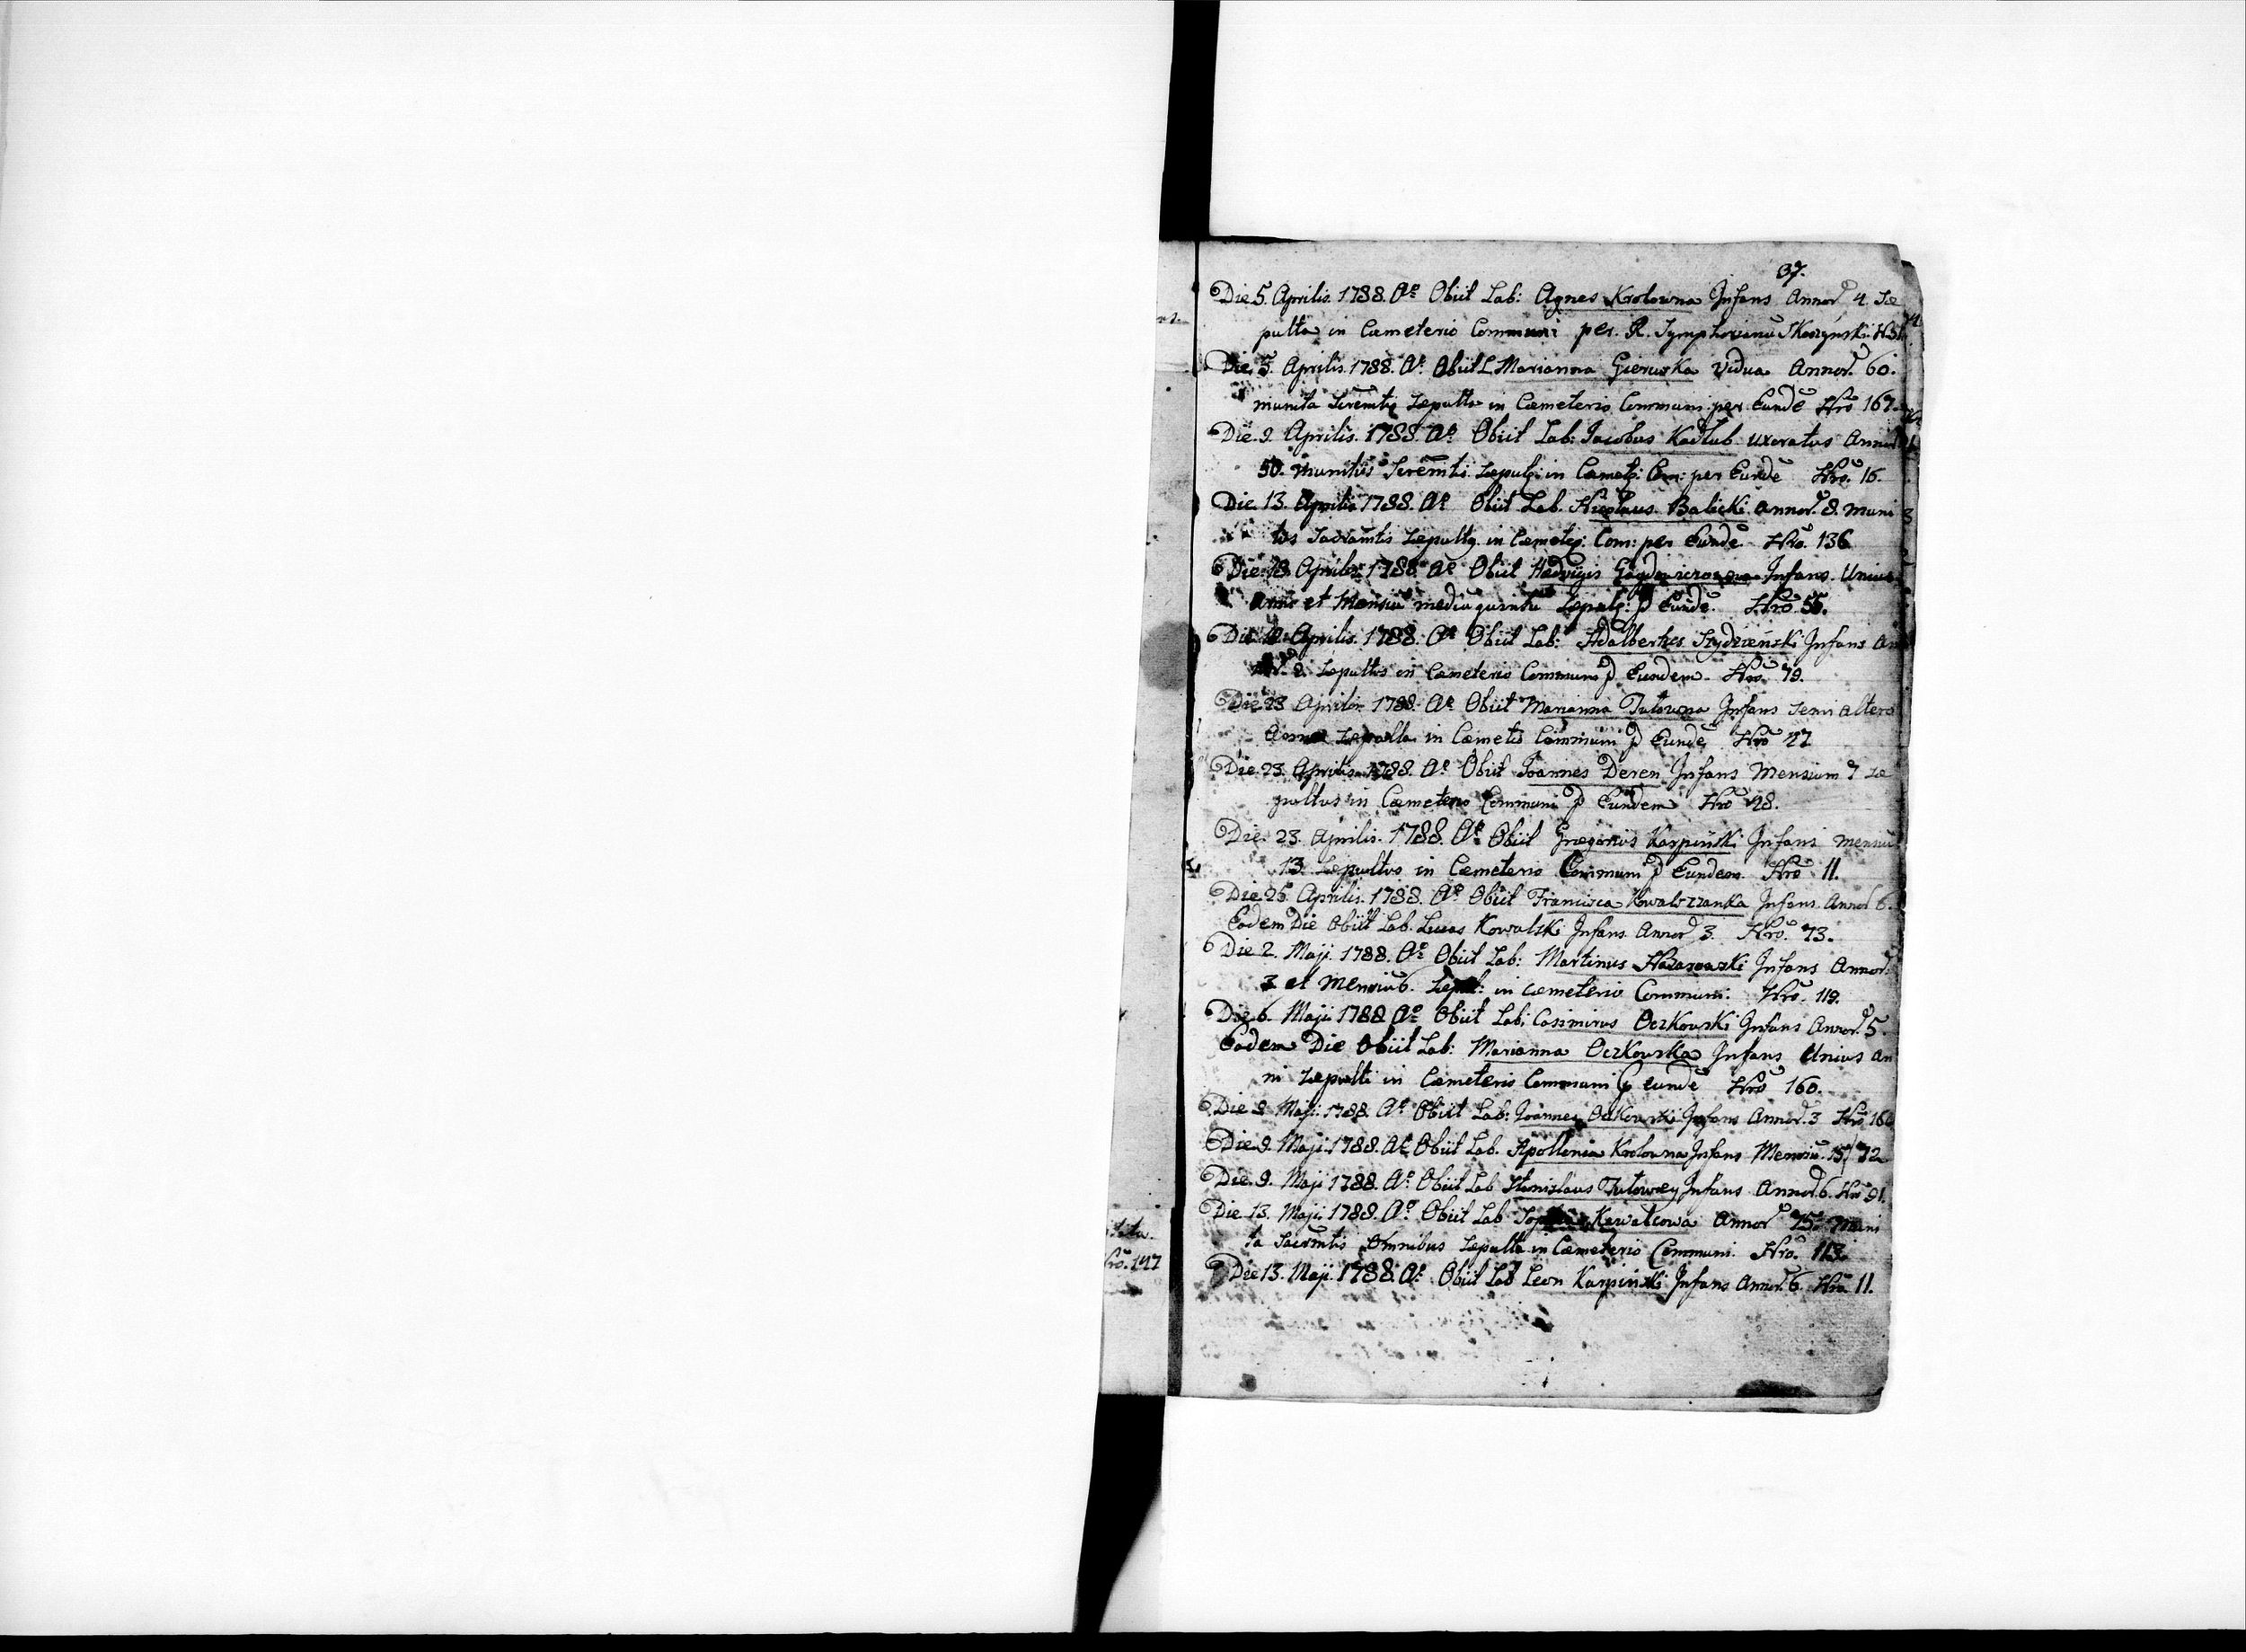 37.
Die 5. Aprilis. 1788. Ao Obiit Lab: Agnes Krolowna Infans Annor 4. Se
pulta in Cæmeterio Communi per R. Symphorianu Skoczynski
Die 5. Aprilis. 1788. Ao Obiit L Marianna Gierurka Vidua Annor. 60.
munita Sacremtis Sepulta in Cæmeterio Communi per Eunde Nro 167.
Die 9. Aprilis. 1788. Ao Obiit Lab: Jacobus Kadlub uxoratus Annor
50. munitus Sacremtis Sepult: in Cæmet: Com: per Eunde Nro. 16.
Die 13. Aprilis 1788. Ao Obiit Lab. Nicolaus Balicki annor. 8. muni
tus Sacramtis Sepultq. in Cæmeter: Com: per Eunde. Nro. 136
Aprilis 1788. Ao Obiit Hedvigis Infans Unius
Anni et Mensiu mediu quintu Sepult: p Eunde. Nro. 55.
Die Aprilis. 1788. Ao Obiit Lab: Adalbertus Szydzienski Infans An
2. Sepultus in Cæmeterio Communi p Eundem. Nro. 79.
Die 23 Aprilis. 1788. Ao Obiit Marianna Tutowna Infans Semi altero
Anno Sepulta in Cæmeto Communi p Eunde Nro 27
Die 23. Aprilis. 1788. Ao Obiit Joannes Deren Infans Mensium 7 Se
pultus in Cæmeterio Communi p Eundem Nro 28.
Die 23. Aprilis. 1788. Ao Obiit Gregorius Karpinski Infans mensiu
13. Sepultus in Cæmeterio Communi p Eundem. Nro 11.
Die 25. Aprilis. 1788. Ao Obiit Francisca Kowalszanka Infans Annor 6.
Eodem Die Obiit Lab. Lucas Kowalski Infans Annor 3. Nro. 73.
Die 2. Maji. 1788. Ao Obiit Lab: Martinus Nazarowski Infans Annor.
3 et Mensiu 6. Sepul: in Cæmeterio Communi. Nro. 119.
Die 6. Maji 1788 Ao Obiit Lab: Casimirus Oczkowski Infans Annor. 5.
Eodem Die Obiit Lab: Marianna Oczkowska Infans Unius an
ni Sepulti in Cæmeterio Communi p Eunde Nro 160.
Die 8. Maji. 1788. Ao Obiit Lab: Joannes Oczkowski Infans Annor. 3 Nro 160
Die 9. Maji. 1788. Ao Obiit Lab. Apollonia Krolowna Infans Mensiu. 15/72
Die 9. Maji 1788. Ao Obiit Lab Stanislaus Tutowey Infans Annor. 6. Nro 91.
Die 13. Maji. 1788. Ao Obiit Lab Kowalcowa Annor 75. Muni
ta Sacrmtis Omnibus Sepulta in Cæmeterio Communi. Nro. 113.
Die 13. Maji. 1788. Ao Obiit Lab Leon Karpinski Infans Annor. 6. Nro 11.